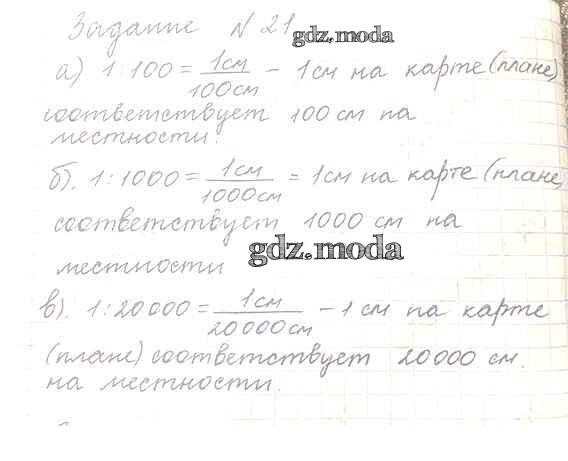 Задание N 21
gdz.moda
а) 1:100 = 1см/100см - 1см на карте (плане)
соответствует 100 см на
местности.
б). 1:1000 = 1см/1000см = 1см на карте (плане
соответствует 1000 см на
gdz.moda
местности
в). 1:20 000 = 1см/20 000 см - 1 см на карте
(плане) соответствует 20 000 см.
на местности.